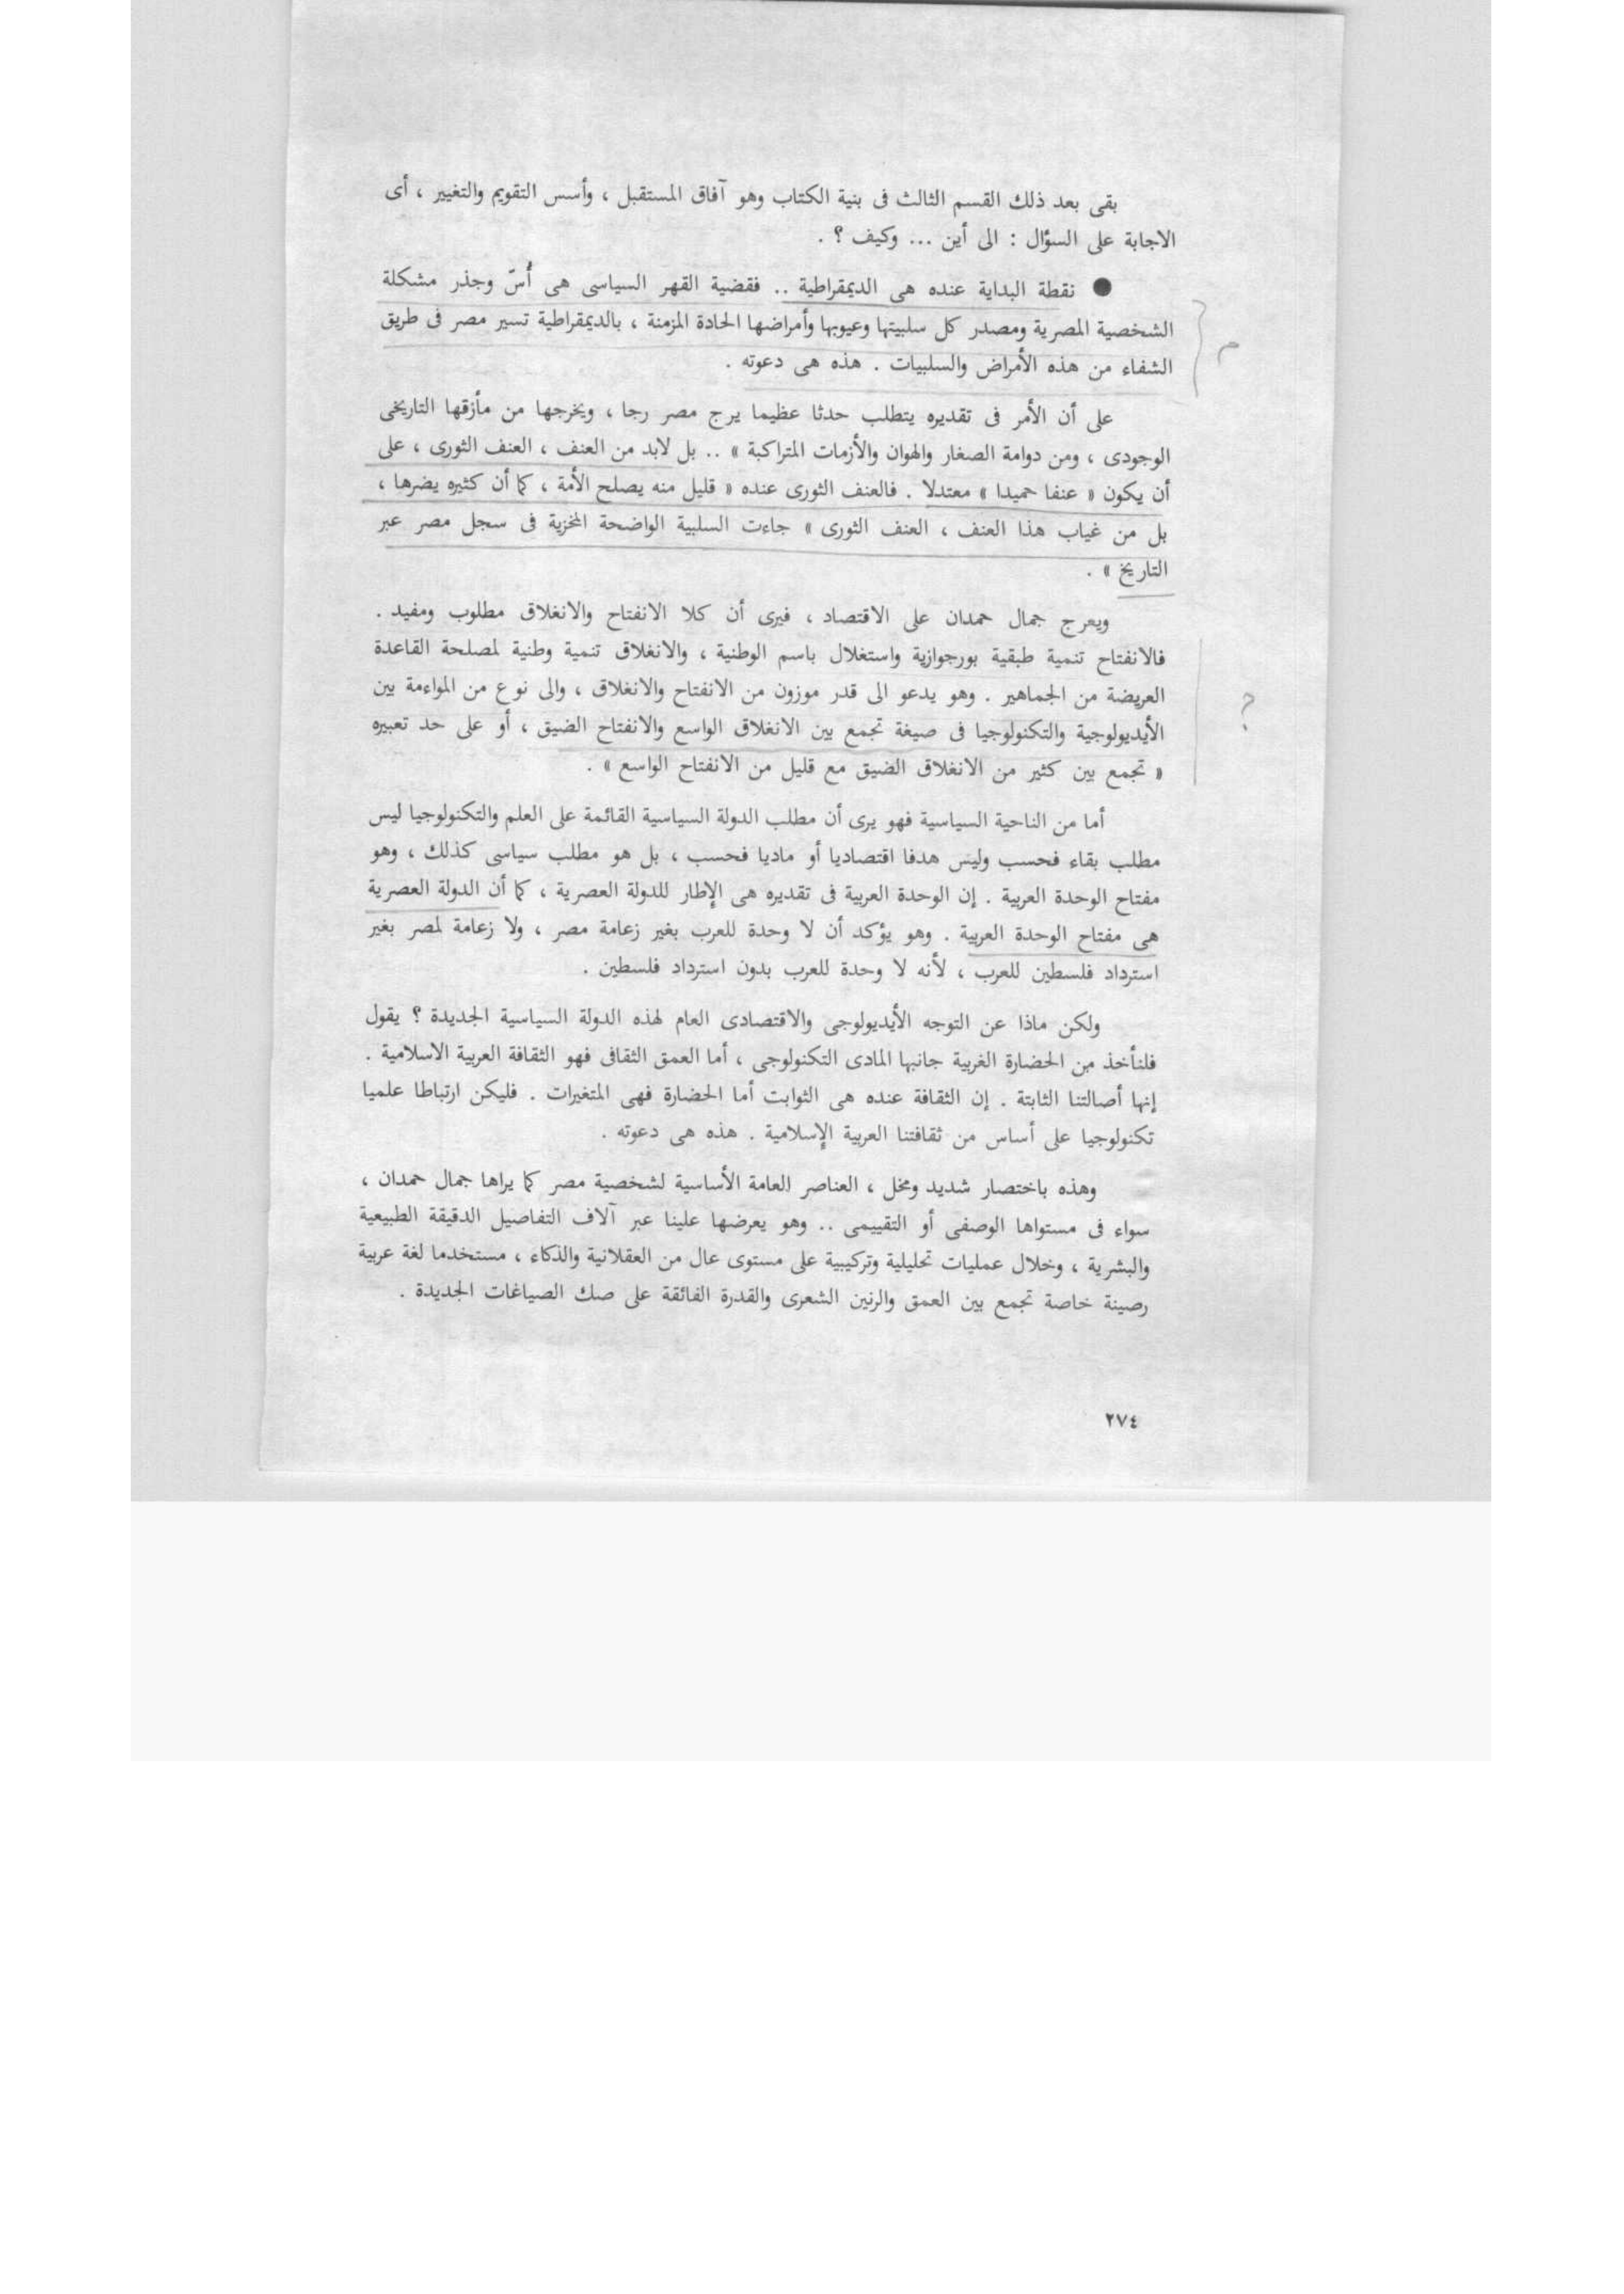 بقى بعد ذلك القسم الثالث فى بنية الكتاب وهو آفاق المستقبل ، وأسس التقويم والتغيير ، أى
الاجابة على السؤال : الى أين ... وكيف ؟ .
● نقطة البداية عنده هى الديمقراطية .. فقضية القهر السياسى هى أُسّ وجذر مشكلة
الشخصية المصرية ومصدر كل سلبيتها وعيوبها وأمراضها الحادة المزمنة ، بالديمقراطية تسير مصر فى طريق
الشفاء من هذه الأمراض والسلبيات . هذه هى دعوته .
م
على أن الأمر فى تقديره يتطلب حدثا عظيما يرج مصر رجا ، ويخرجها من مأزقها التاريخى
الوجودى ، ومن دوامة الصغار والهوان والأزمات المتراكبة » .. بل لابد من العنف ، العنف الثورى ، على
أن يكون « عنفا حميدا » معتدلا . فالعنف الثورى عنده « قليل منه يصلح الأمة ، كما أن كثيره يضرها ،
بل من غياب هذا العنف ، العنف الثورى » جاءت السلبية الواضحة المخزية فى سجل مصر عبر
التاريخ » .
ويعرج جمال حمدان على الاقتصاد ، فيرى أن كلا الانفتاح والانغلاق مطلوب ومفيد .
فالانفتاح تنمية طبقية بورجوازية واستغلال باسم الوطنية ، والانغلاق تنمية وطنية لمصلحة القاعدة
العريضة من الجماهير . وهو يدعو الى قدر موزون من الانفتاح والانغلاق ، والى نوع من المواءمة بين
؟
الأيديولوجية والتكنولوجيا فى صيغة تجمع بين الانغلاق الواسع والانفتاح الضيق ، أو على حد تعبيره
« تجمع بين كثير من الانغلاق الضيق مع قليل من الانفتاح الواسع » .
أما من الناحية السياسية فهو يرى أن مطلب الدولة السياسية القائمة على العلم والتكنولوجيا ليس
مطلب بقاء فحسب وليس هدفا اقتصاديا أو ماديا فحسب ، بل هو مطلب سياسى كذلك ، وهو
مفتاح الوحدة العربية . إن الوحدة العربية فى تقديره هى الإطار للدولة العصرية ، كما أن الدولة العصرية
هى مفتاح الوحدة العربية . وهو يؤكد أن لا وحدة للعرب بغير زعامة مصر ، ولا زعامة لمصر بغير
استرداد فلسطين للعرب ، لأنه لا وحدة للعرب بدون استرداد فلسطين .
ولكن ماذا عن التوجه الأيديولوجى والاقتصادى العام لهذه الدولة السياسية الجديدة ؟ يقول
فلنأخذ من الحضارة الغربية جانبها المادى التكنولوجى ، أما العمق الثقافى فهو الثقافة العربية الاسلامية .
إنها أصالتنا الثابتة . إن الثقافة عنده هى الثوابت أما الحضارة فهى المتغيرات . فليكن ارتباطا علميا
تكنولوجيا على أساس من ثقافتنا العربية الإسلامية . هذه هى دعوته .
وهذه باختصار شديد ومخل ، العناصر العامة الأساسية لشخصية مصر كما يراها جمال حمدان ،
سواء فى مستواها الوصفى أو التقييمى .. وهو يعرضها علينا عبر آلاف التفاصيل الدقيقة الطبيعية
والبشرية ، وخلال عمليات تحليلية وتركيبية على مستوى عال من العقلانية والذكاء ، مستخدما لغة عربية
رصينة خاصة تجمع بين العمق والرنين الشعرى والقدرة الفائقة على صك الصياغات الجديدة .
٢٧٤